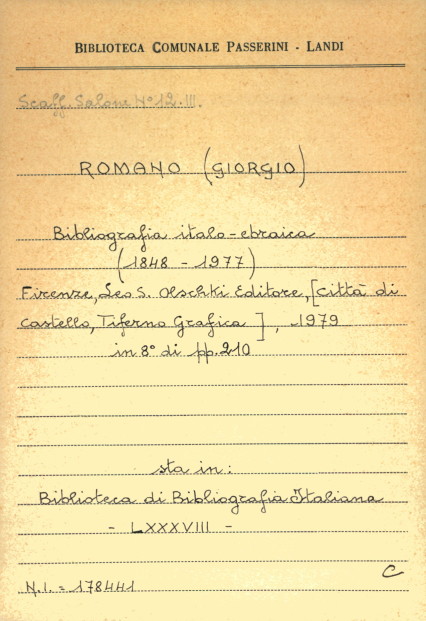 BIBLIOTECA COMUNALE PASSERINI - LANDI
Scaff. Salone Nº 12.III.
ROMANO (GIORGIO)
Bibliografia italo-ebraica
(1848 - 1977)
Firenze, Leo S. Olschki Editore, [Città di
Castello, Tiferno Grafica], 1979
in 8° di pp. 210
sta in:
Biblioteca di Bibliografia Italiana
- LXXXVIII -
C
N.I. = 178441